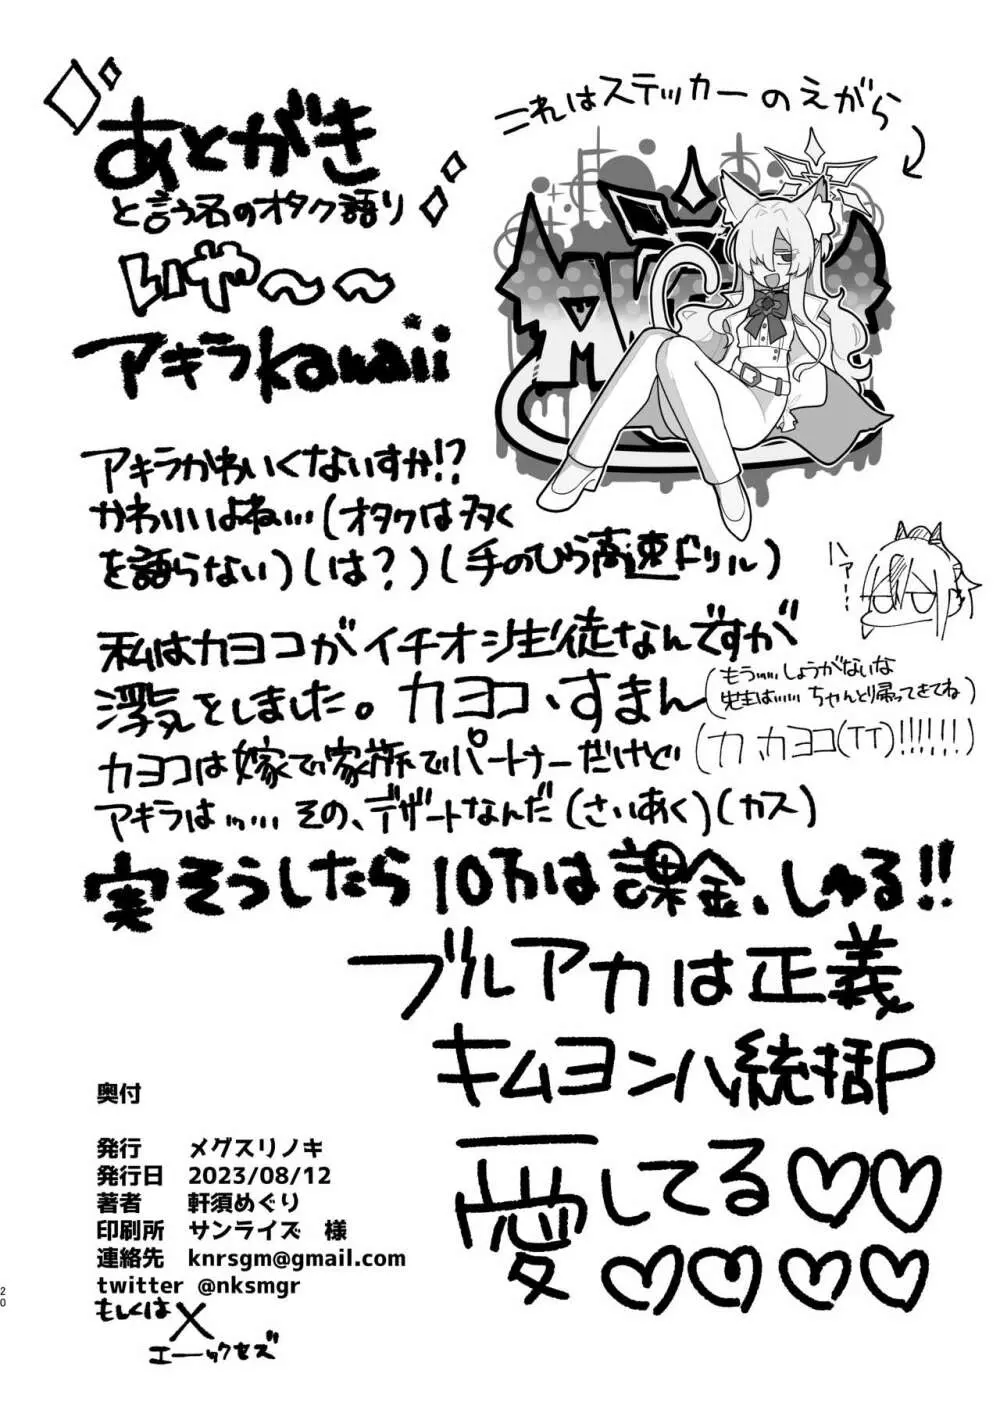 これはステッカーのえがら
あとがき
と言う名のオタク語り
いや〜〜
アキラkawaii
アキラかわいくないすか!?
かわいいよね…(オタクは多く
を語らない)(は?)(手のひら高速ドリル)
ハァ…
私はカヨコがイチオシ生徒なんですが
浮気をしました。カヨコ、すまん
(もう……しょうがないな
先生は…… ちゃんと帰ってきてね)
(カ、カヨコ(TT)!!!!!!)
カヨコは嫁で家族でパートナーだけど
アキラは…… その、デザートなんだ(さいあく)(カス)
実そうしたら10万は課金、しゅる!!
ブルアカは正義
キムヨンハ統括P
愛してる♡♡
♡♡♡♡
奥付
発行 メグスリノキ
発行日 2023/08/12
著者 軒須めぐり
印刷所 サンライズ 様
連絡先 knrsgm@gmail.com
twitter @nksmgr
もしくは X
エーックセズ
20